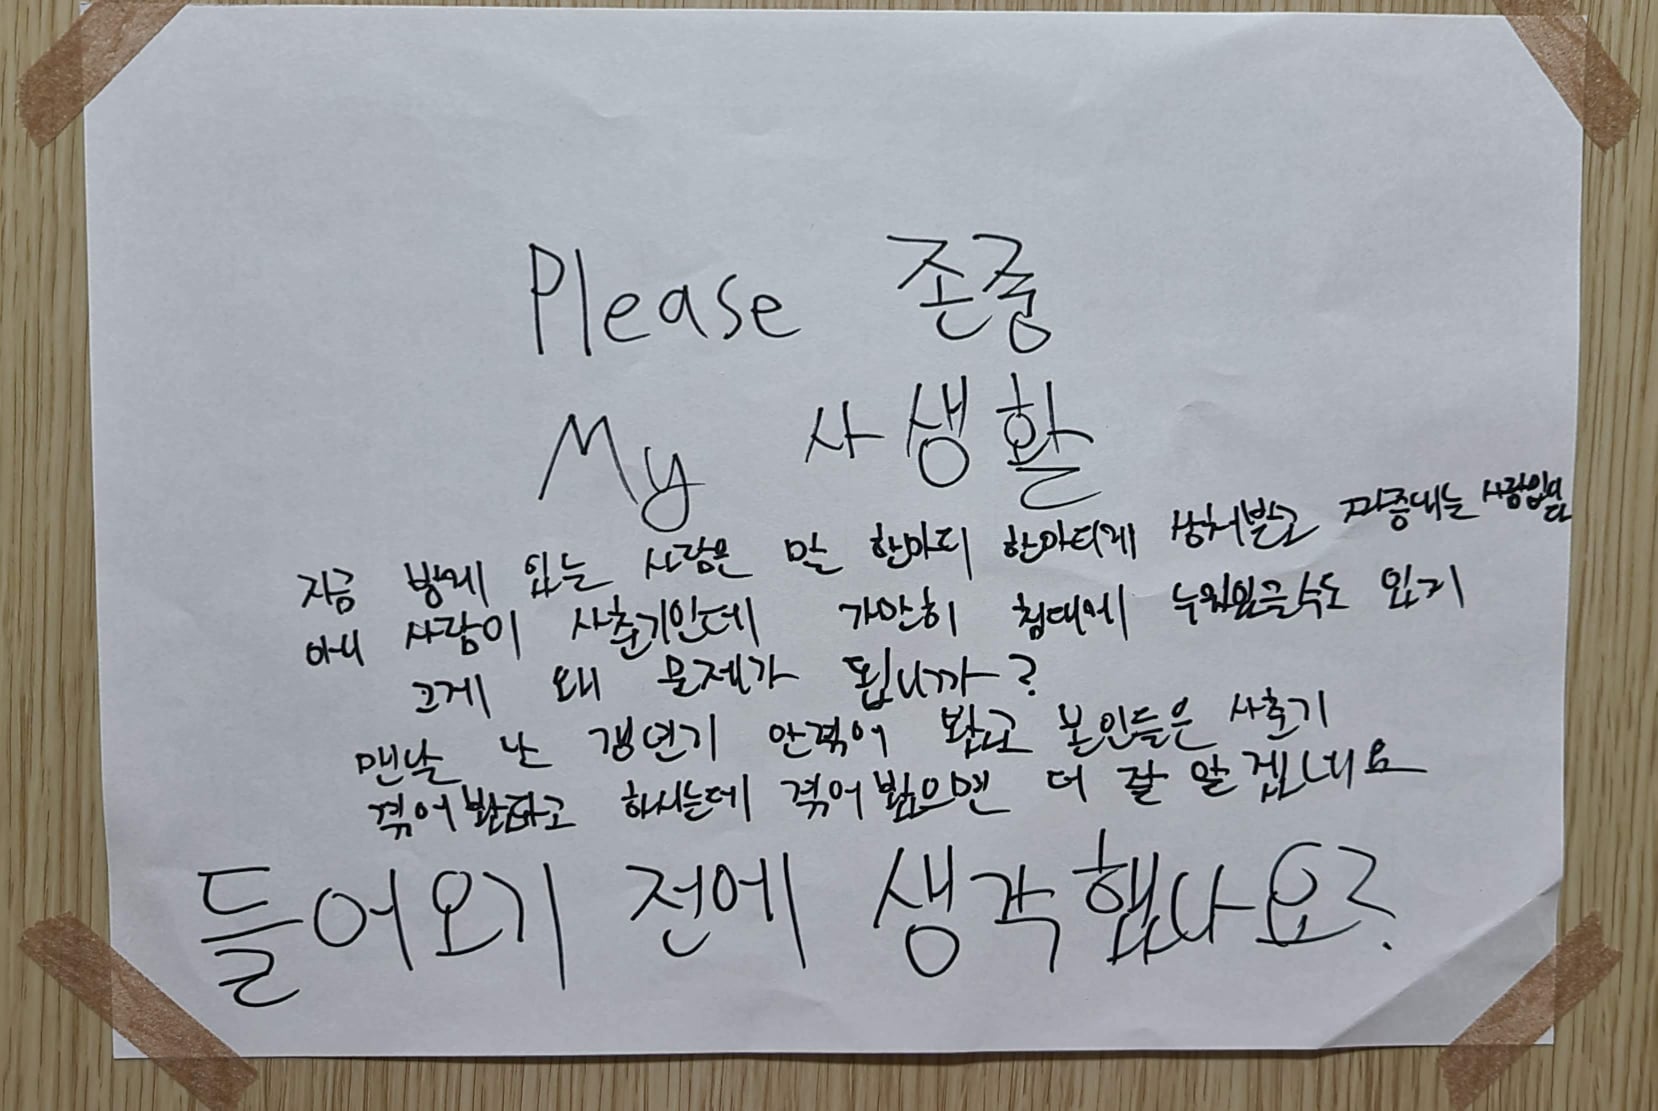 Please 존중
My 사생활
지금 방에 있는 사람은 말 한마디 한마디에 상처받고 짜증내는 사람입니다
아니 사람이 사춘기인데 가만히 침대에 누워있을수도 있지
그게 왜 문제가 됩니까?
맨날 난 갱년기 안겪어 봤고 본인들은 사춘기
겪어봤다고 하시는데 겪어봤으면 더 잘 알겠네요
들어오기 전에 생각했나요?